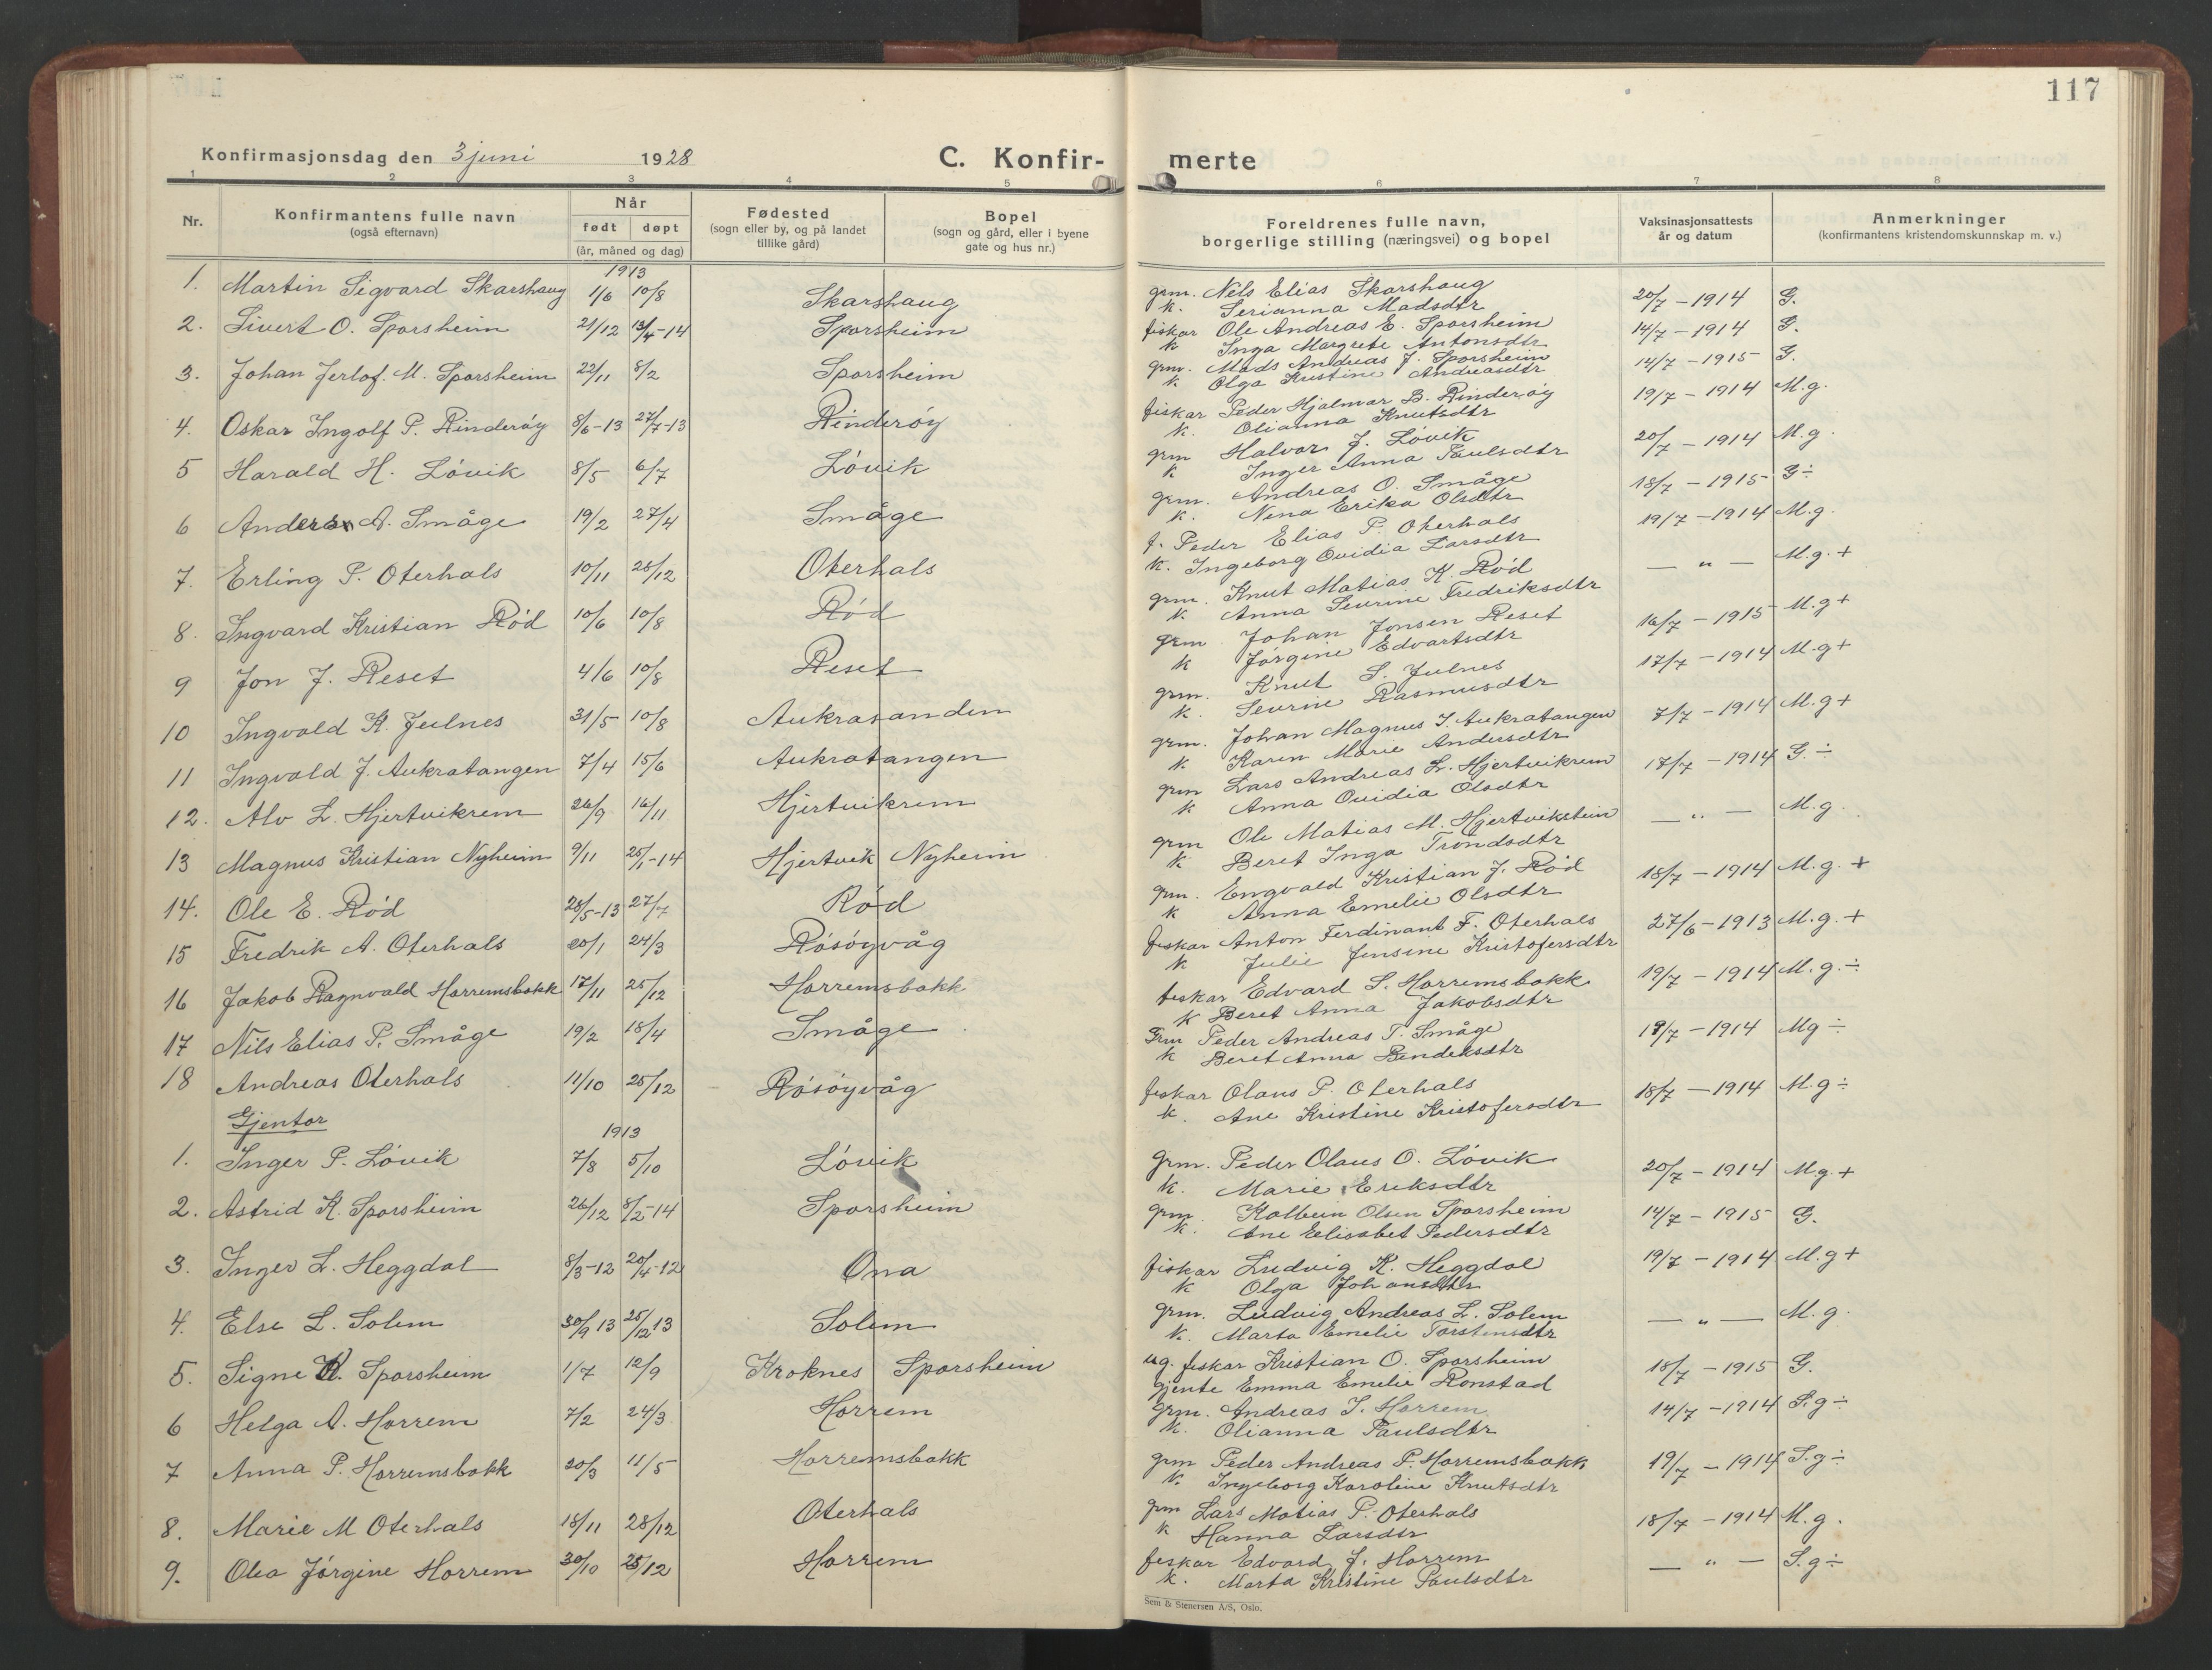 117
Konfirmasjonsdag den 3 juni 1928
C. Konfir-
merte
1 2 3 4 5 6 7 8
Nr.
Konfirmantens fulle navn
(også efternavn)
Når
født døpt
(år, måned og dag)
Fødested
(sogn eller by, og på landet
tillike gård)
Bopel
(sogn og gård, eller i byene
gate og hus nr.)
Foreldrenes fulle navn,
borgerlige stilling (næringsvei) og bopel
Vaksinasjonsattests
år og datum
Anmerkninger
(konfirmantens kristendomskunnskap m. v.)
1913
1. Martin Sigvard Skarshaug 1/6 10/8 Skarshaug grm. Nels Elias Skarshaug 20/7 - 1914 G.
k. Serianna Madsdtr
2. Sivert O. Sporsheim 21/12 13/4-14 Sporsheim fiskar Ole Andreas E. Sporsheim 14/7 - 1914 G.
k Inga Margrete Antonsdtr
3. Johan Jertof. M. Sporsheim 22/11 8/2 Sporsheim grm. Mads Andreas J. Sporsheim 14/7 - 1915 G.
k. Olga Kristine Andreasdtr
4. Oskar Ingolf P. Rinderøy 8/6-13 27/7-13 Rinderøy fiskar Peder Hjalmar B. Rinderøy 19/7 - 1914 M.g.
k. Olianna Knutsdtr
5 Harald H. Lóvik 8/5 6/7 Lóvik grm Halvor J. Lóvik 20/7 - 1914 M.g.
k Inger Anna Paulsdtr
6 Anders A. Småge 19/2 27/4 Småge grm. Andreas O. Småge 18/7 - 1915 G÷
k. Nena Erika Olsdtr
7. Erling P. Oterhals 10/11 28/12 Oterhals f. Peder Elias P. Oterhals 19/7 - 1914 M.g.
k. Ingeborg Ovidia Larsdtr
8. Ingvard Kristian Ród 10/6 10/8 Ród grm. Knut Matias K. Ród — " — M.g.+
k. Anna Sevrine Fredriksdtr
9 Jon J. Reset 4/6 10/8 Reset grm Johan Jonsen Reset 16/7 - 1915 M.g+
k Jórgine Edvartsdtr
10 Ingvald K. Julnes 31/5 10/8 Aukrasanden grm. Knut S. Julnes 17/7 - 1914 M.g+
k. Sevrine Rasmusdtr
11 Ingvald J. Aukratangen 7/4 15/6 Aukratangen grm. Johan Magnus I. Aukratangen 7/7 - 1914 M.g+
k. Karen Marie Andersdtr
12. Alv L. Hjertvikrem 26/9 16/11 Hjertvikrem grm Lars Andreas L. Hjertvikrem 17/7 - 1914 G.÷
k Anna Ovidia Olsdtr
13 Magnus Kristian Nyheim 9/11 25/1-14 Hjertvik Nyheim grm Ole Matias M. Hjertvikstein — " — M.g.
k. Beret Inga Trondsdtr
14. Ole E. Ród 28/5-13 27/7 Ród grm. Engvald Kristian J. Ród 18/7 - 1914 M.g. +
k Anna Emelie Olsdtr
15 Fredrik A. Oterhals 20/1 24/3 Rósóyvåg fiskar Anton Ferdinant F. Oterhals 27/6 - 1913 M.g.+
k Julie Jensine Kristofersdtr
16 Jakob Ragnvald Horremsbakk 17/11 25/12 Horremsbakk fiskar Edvard S. Horremsbakk 19/7 - 1914 M.g.÷
k Beret Anna Jakobsdtr
17 Nils Elias P. Småge 19/2 18/4 Småge Grm Peder Andreas T. Småge 19/7 - 1914 Mg ÷
k Beret Anna Bendeksdtr
18 Andreas Oterhals 11/10 25/12 Rósóyvåg fiskar Olaus P. Oterhals 18/7 - 1914 M.g÷
k. Ane Kristine Kristofersdtr
Gjentor
1913
1. Inger P. Lóvik 7/8 5/10 Lóvik Grm. Peder Olaus O. Lóvik 20/7 - 1914 Mg.+
k. Marie Eriksdtr
2. Astrid K. Sporsheim 26/12 8/2-14 Sporsheim grm. Kolbein Olsen Sporsheim 14/7 - 1915 G.
k. Ane Elisabet Pedersdtr
3. Inger L. Heggdal 8/3-12 20/4-12 Ona fiskar Ludvig K. Heggdal 19/7 - 1914 M.g+
k Olga Johansdtr
4. Else L. Solem 30/9 13 25/12 13 Solem grm. Ludvig Andreas L. Solem — " — M.g.
k. Marta Emelie Torstensdtr
5. Signe K. Sporsheim 1/7 12/9 Kroknes Sporsheim ug. fiskar Kristian O. Sporsheim 18/7 - 1915 G.
gjente Emma Emelie Ronstad
6 Helga A. Horrem 7/2 24/3 Horrem grm. Andreas I. Horrem 14/7 - 1914 S.g÷
k. Olianna Paulsdtr
7 Anna P. Horremsbakk 20/3 11/5 Horremsbakk grm Peder Andreas P. Horremsbakk 19/7 - 1914 S.g÷
k. Ingeborg Karoline Knutsdtr
8. Marie M Oterhals 18/11 28/12 Oterhals grm Lars Matias P. Oterhals 18/7 - 1914 M.g.
k Hanna Larsdtr
9. Olea Jórgine Horrem 30/10 25/12 Horrem fiskar Edvard J. Horrem — " — S.g÷
k. Marta Kristine Paulsdtr
Sem & Stenersen A/S, Oslo.